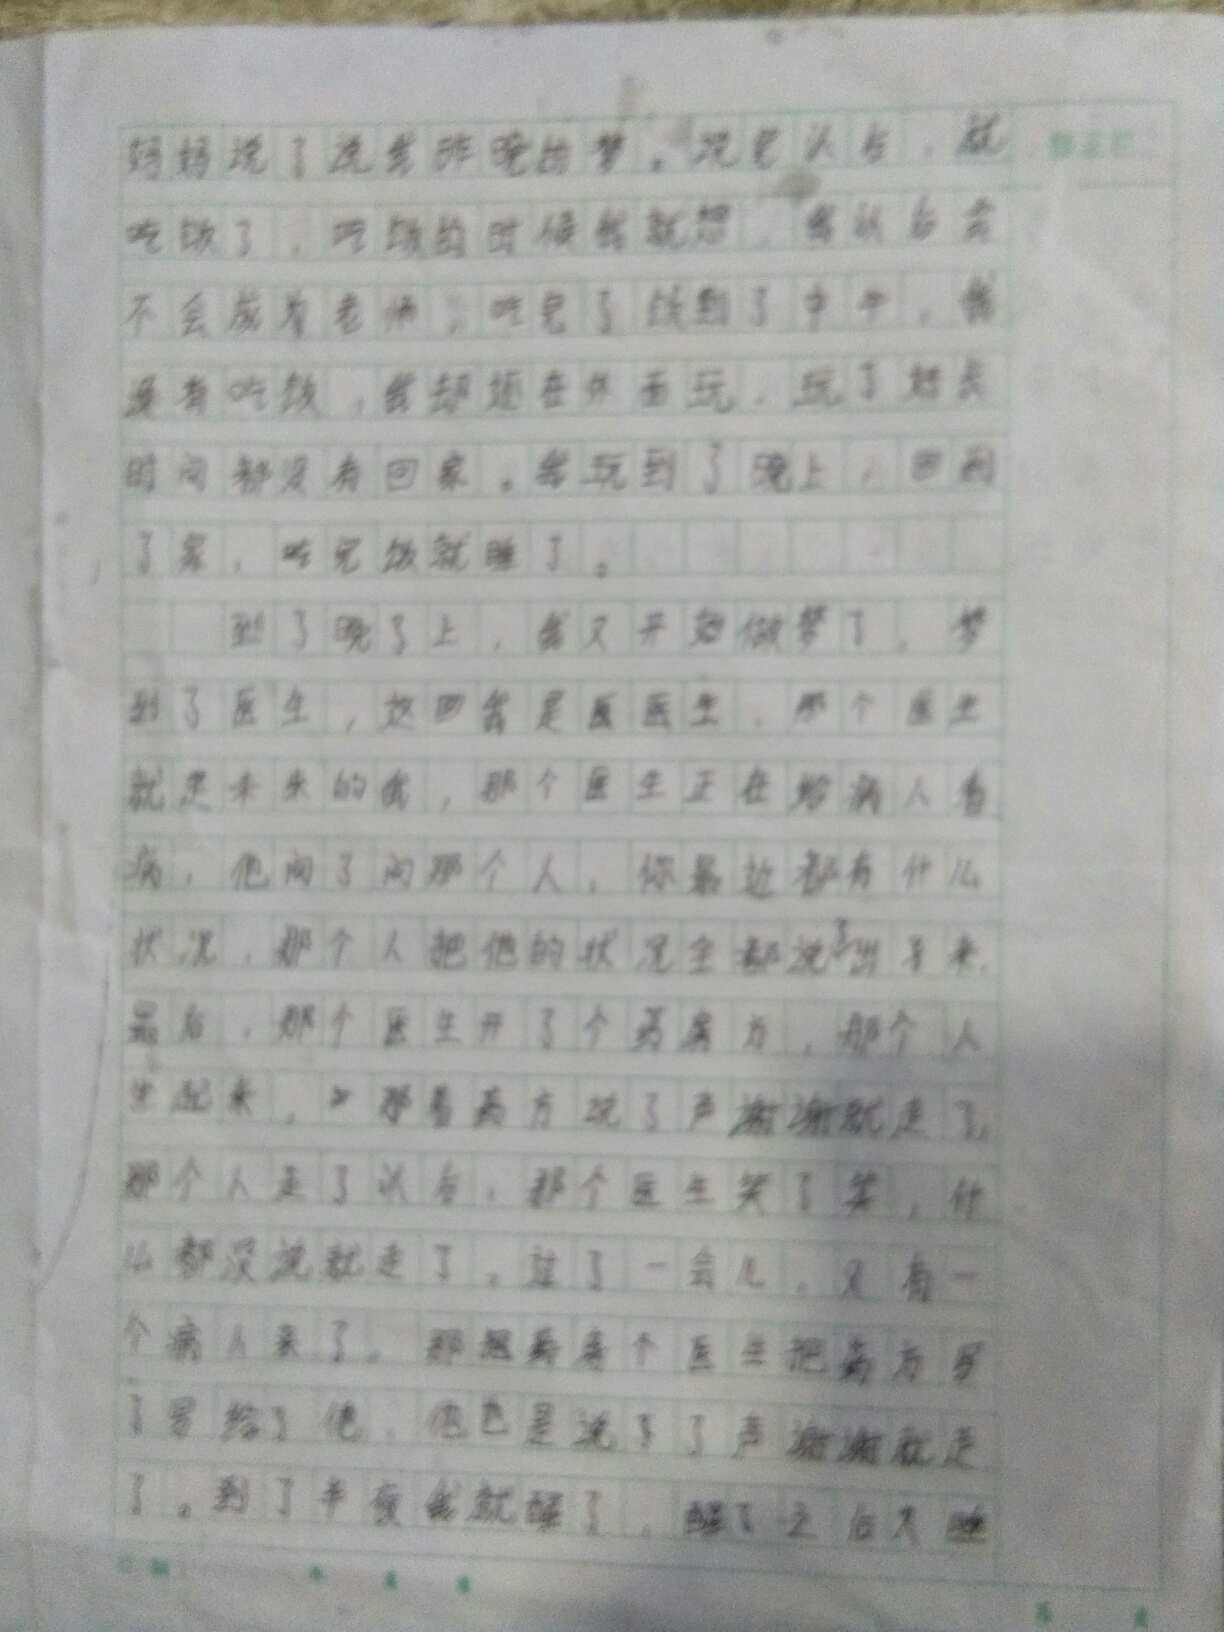 妈妈说了说我昨晚的梦。说完以后，就
吃饭了，吃饭的时候我就想，我以后会
不会成为老师，吃完了饭到了中午，我
没有吃饭，我却还在外面玩，玩了好长
时间都没有回家。我玩到了晚上，回到
了家，吃完饭就睡了。
到了晚了上，我又开始做梦了，梦
到了医生，这回我是医医生，那个医生
就是未来的我，那个医生正在给病人看
病，他问了问那个人，你最近都有什么
状况，那个人把他的状况全都说了出来，
最后，那个医生开了个药方，那个人
起来，着药方说了声谢谢就走了。
那个人走了以后，那个医生笑了笑，什
么都没说就走了。过了一会儿，又有一
个病人来了。那个医生把药方写
了给了他，他也是说了了声谢谢就走
了。到了半夜我就醒了，醒了之后又睡